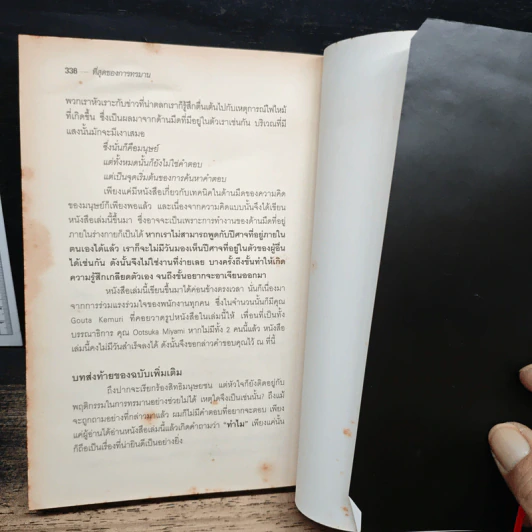 338 ที่สุดของการทรมาน
พวกเราหัวเราะกับข่าวที่น่าตลกเราก็รู้สึกตื่นเต้นไปกับเหตุการณ์ไฟไหม้
ที่เกิดขึ้น ซึ่งเป็นผลมาจากด้านมืดที่มีอยู่ในตัวเราเช่นกัน บริเวณที่มี
แสงนั้นมักจะมีเงาเสมอ
ซึ่งนั่นก็คือมนุษย์
แต่ทั้งหมดนั้นก็ยังไม่ใช่คำตอบ
แต่เป็นจุดเริ่มต้นของการค้นหาคำตอบ
เพียงแค่มีหนังสือเกี่ยวกับเทคนิคในด้านมืดของความคิด
ของมนุษย์ก็เพียงพอแล้ว และเนื่องจากความคิดแบบนั้นจึงได้เขียน
หนังสือเล่มนี้ขึ้นมา ซึ่งอาจจะเป็นเพราะการทำงานของด้านมืดที่อยู่
ภายในร่างกายก็เป็นได้ หากเราไม่สามารถพูดกับปีศาจที่อยู่ภายใน
ตนเองได้แล้ว เราก็จะไม่มีวันมองเห็นปีศาจที่อยู่ในตัวของผู้อื่น
ได้เช่นกัน ดังนั้นจึงไม่ใช่งานที่ง่ายเลย บางครั้งถึงขั้นทำให้เกิด
ความรู้สึกเกลียดตัวเอง จนถึงขั้นอยากจะอาเจียนออกมา
หนังสือเล่มนี้เขียนขึ้นมาได้ค่อนข้างตรงเวลา นั่นก็เนื่องมา
จากการร่วมแรงร่วมใจของพนักงานทุกคน ซึ่งในจำนวนนั้นก็มีคุณ
Gouta Kemuri ที่คอยวาดรูปหนังสือในเล่มนี้ให้ เพื่อนที่เป็นทั้ง
บรรณาธิการ คุณ Ootsuka Miyami หากไม่มีทั้ง 2 คนนี้แล้ว หนังสือ
เล่มนี้คงไม่มีวันสำเร็จลงได้ ดังนั้นจึงขอกล่าวคำขอบคุณไว้ ณ ที่นี้
บทส่งท้ายของฉบับเพิ่มเติม
ถึงปากจะเรียกร้องสิทธิมนุษยชน แต่หัวใจก็ยังคิดอยู่กับ
พฤติกรรมในการทรมานอย่างช่วยไม่ได้ เหตุใดจึงเป็นเช่นนั้น? ถึงแม้
จะถูกถามอย่างที่กล่าวมาแล้ว ผมก็ไม่มีคำตอบที่อยากจะตอบ เพียง
แค่ผู้อ่านได้อ่านหนังสือเล่มนี้แล้วเกิดคำถามว่า "ทำไม" เพียงแค่นั้น
ก็ถือเป็นเรื่องที่น่ายินดีเป็นอย่างยิ่ง